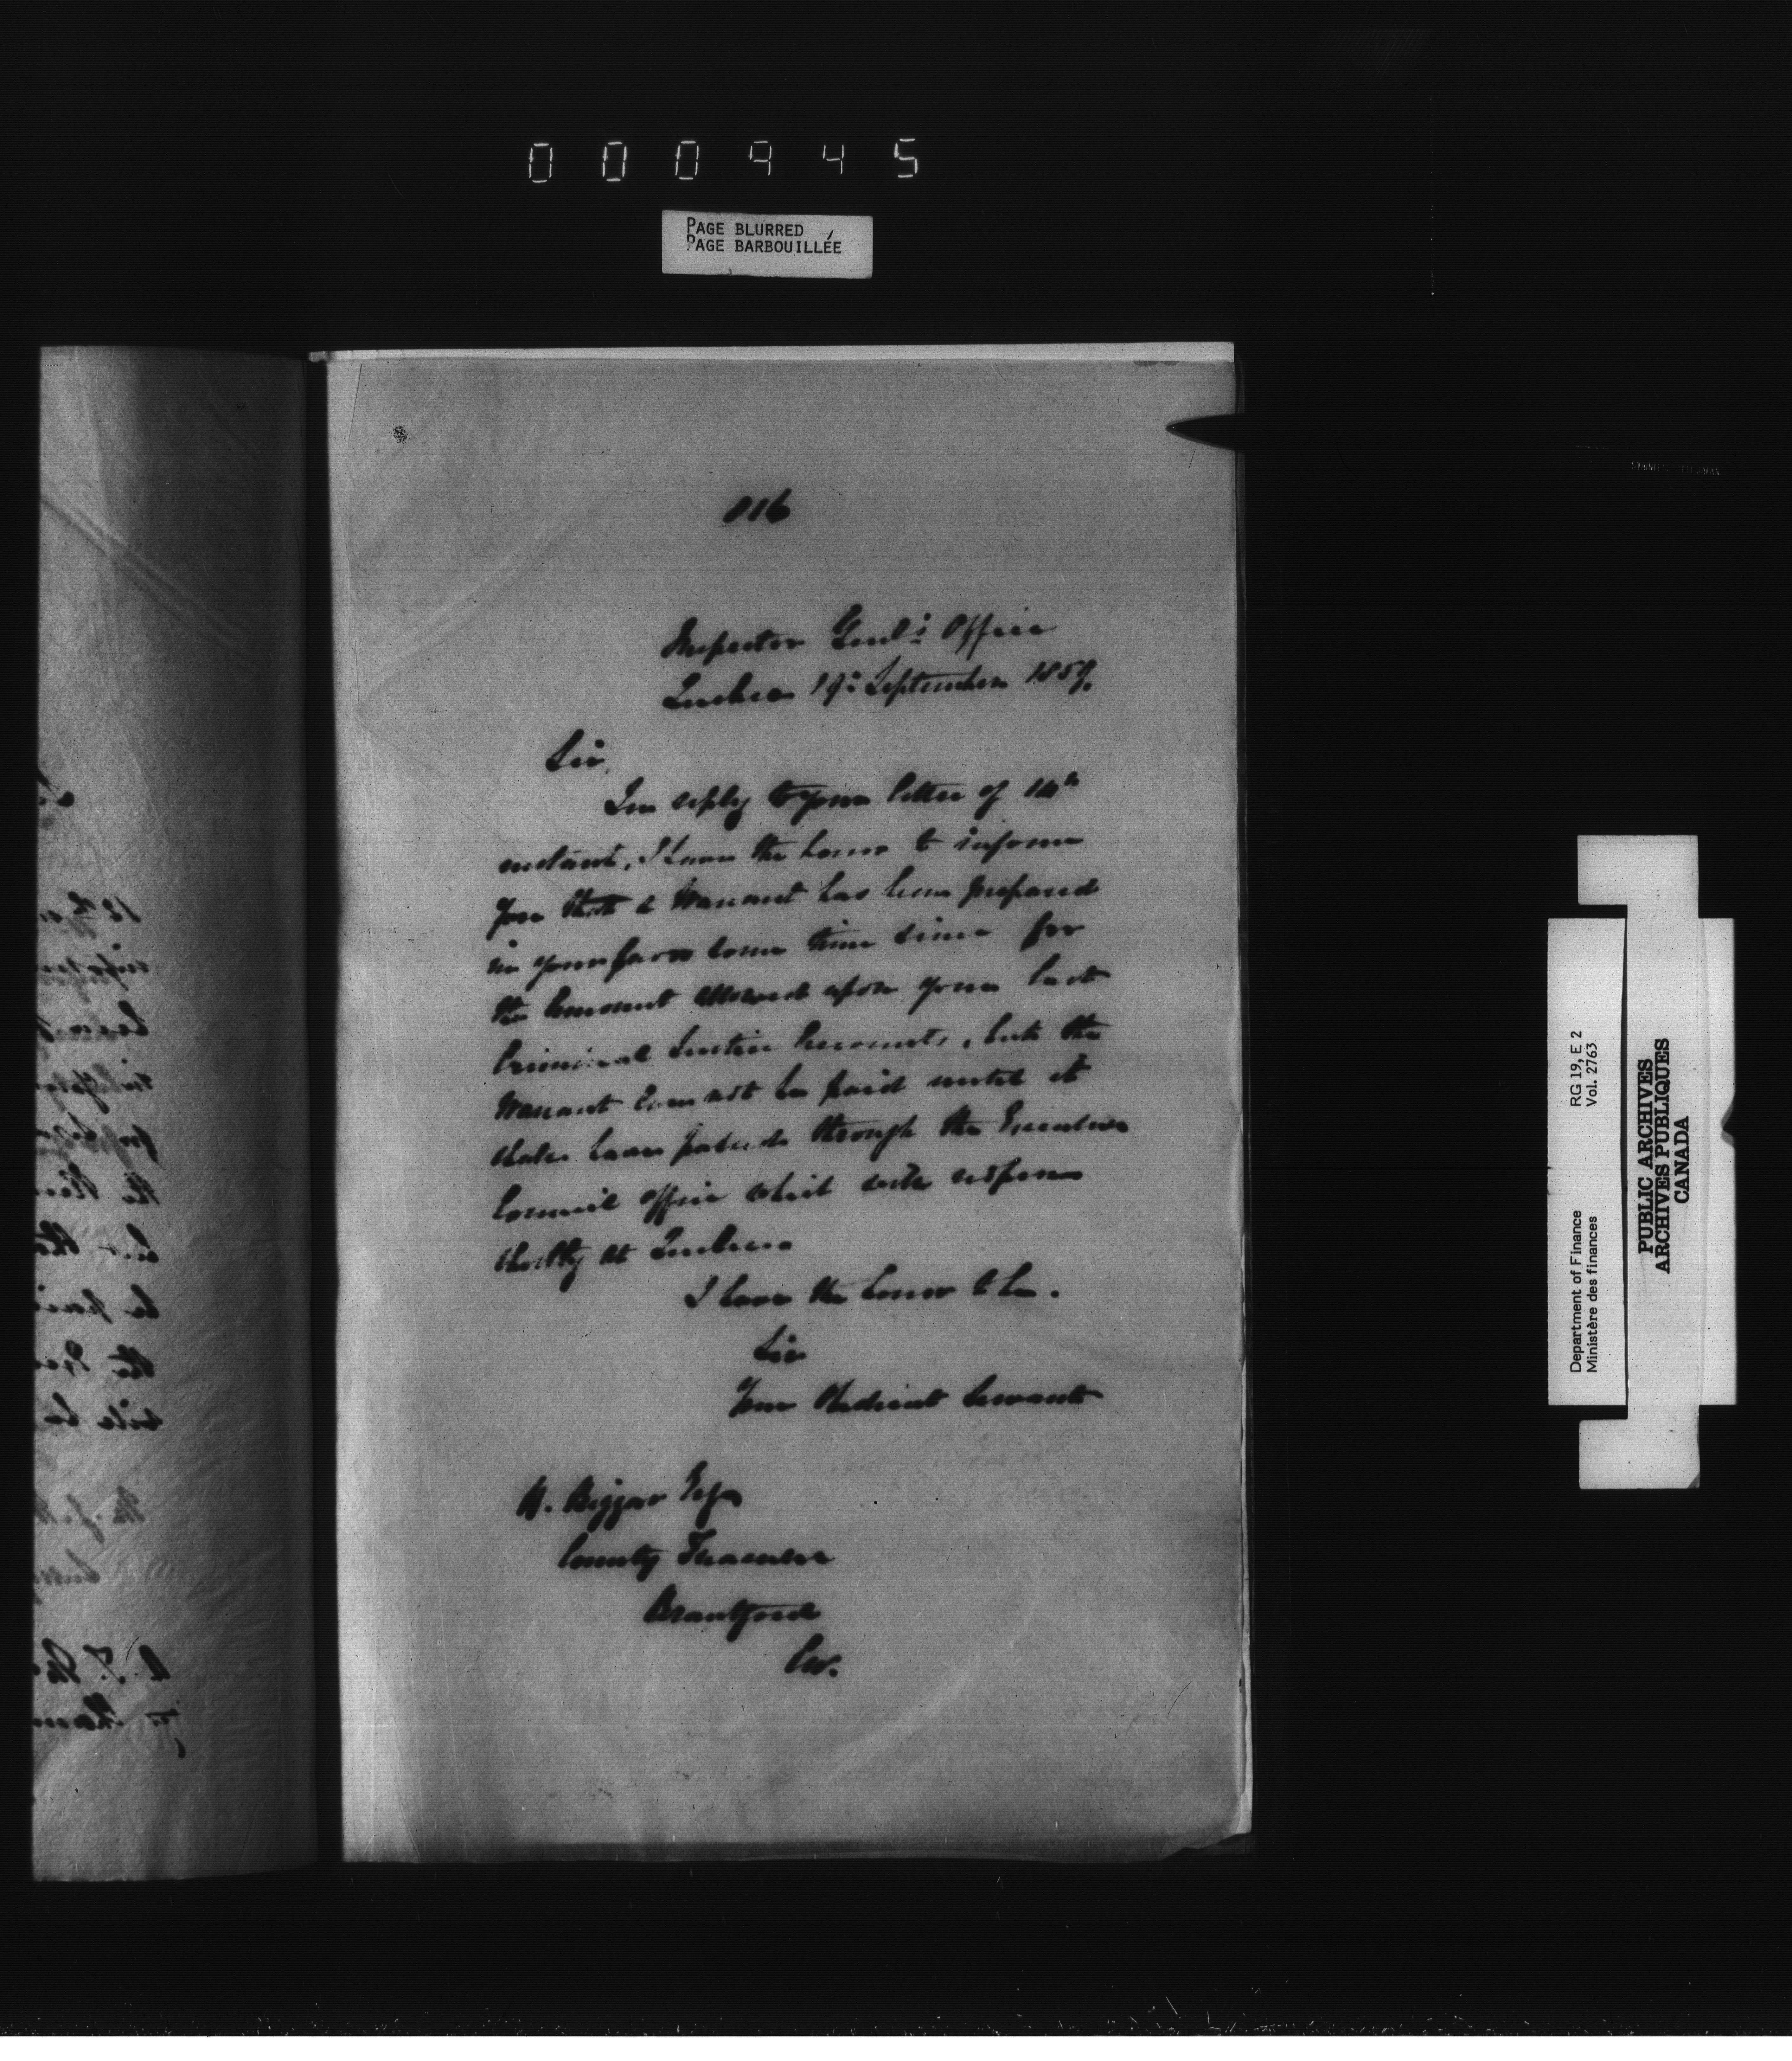 000945
PAGE BLURRED
PAGE BARBOUILLÉE
816
Inspector Genl's Office
Quebec 19th September 1859.
Sir,
In reply to your letter of 14th
instant, I have the honor to inform
you that a Warrant has been prepared
in your favor some time since for
the Amount allowed upon your last
Criminal Justice Accounts, but the
Warrant cannot be paid until it
shall have passed through the Executive
Council Office which will reopen
shortly at Quebec
I have the honor to be.
Sir
Your Obedient Servant
H. Biggar Esqr
County Treasurer
Brantford
CW.
Department of Finance
Ministère des finances
RG 19, E 2
Vol. 2763
PUBLIC ARCHIVES
ARCHIVES PUBLIQUES
CANADA